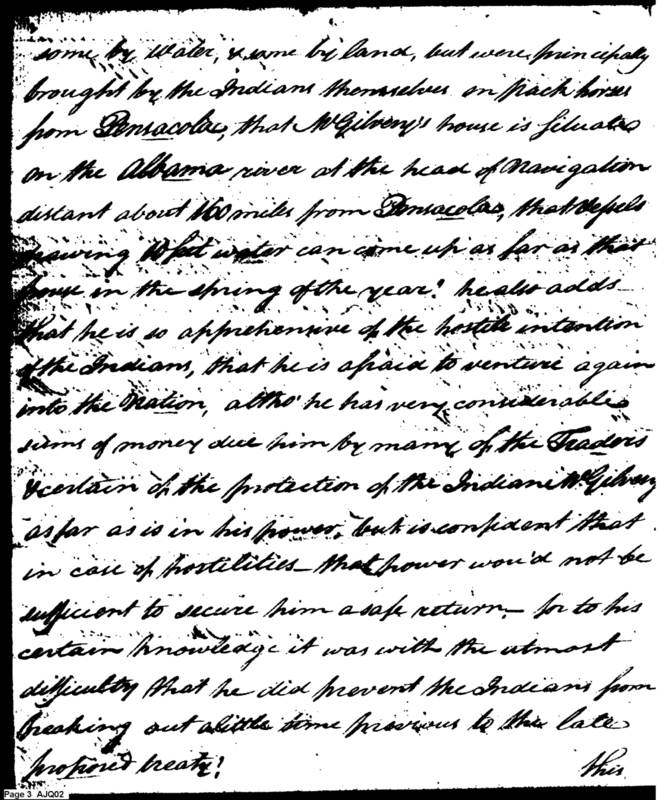 some by water, & some by land, but were principally
brought by the Indians themselves on pack horses
from Pensacola, that McGilvery's house is situate
on the Albama river at the head of Navigation
distant about 160 miles from Pensacola, that Vessels
drawing 10 feet water can come up as far as that
house in the spring of the year! he also adds
that he is so apprehensive of the hostile intention
of the Indians, that he is afraid to venture again
into the Nation, altho' he has very considerable
sums of money due him by many of the Traders
& certain of the protection of the Indian McGilvery
as far as is in his power, but is confident that
in case of hostilities – that power wou'd not be
sufficient to secure him a safe return – for to his
certain knowledge it was with the utmost
difficulty that he did prevent the Indians from
breaking out a little time previous to the late
proposed treaty!
this
Page 3 AJQ02